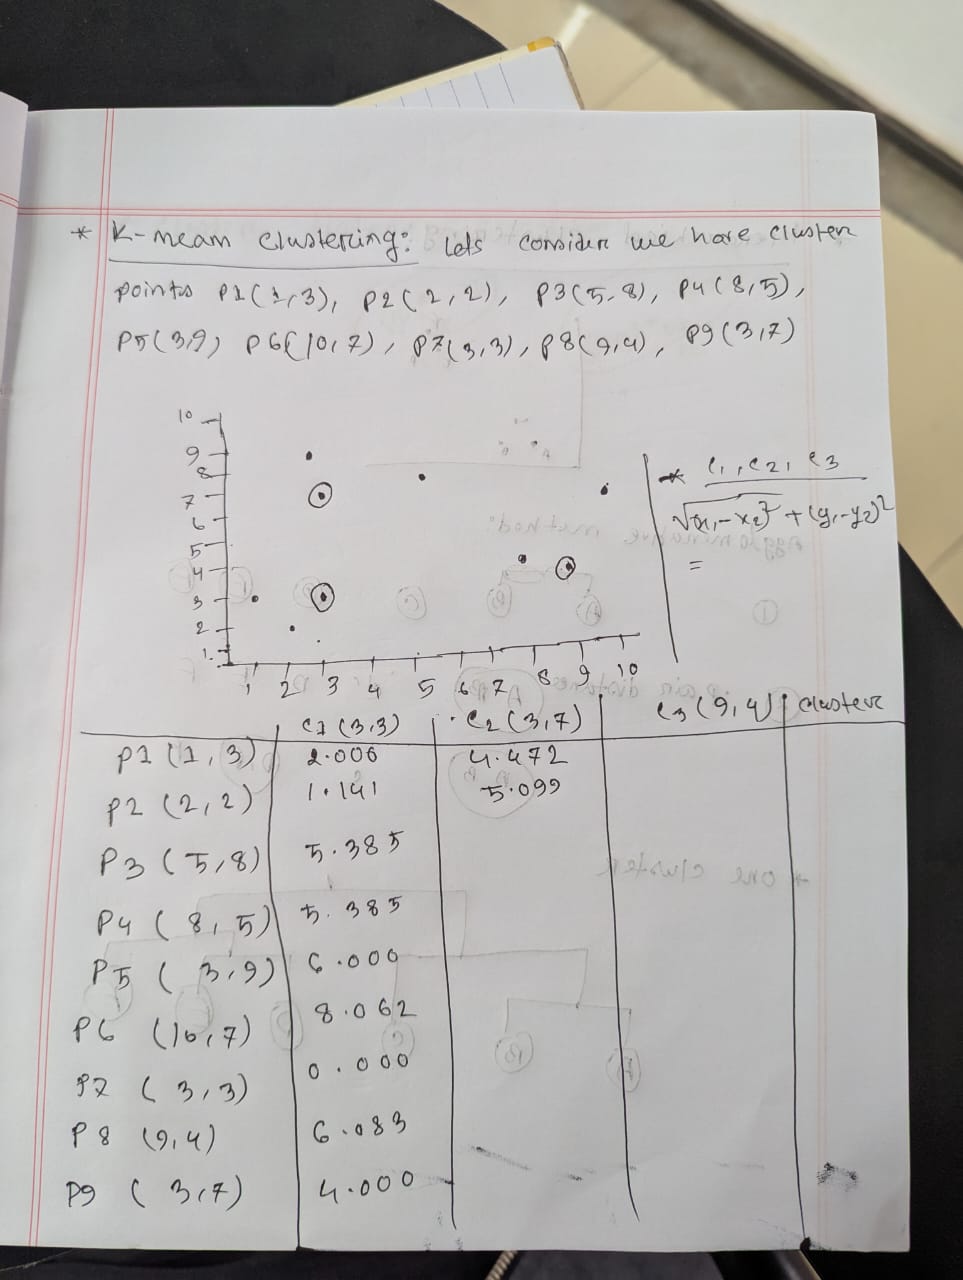 * K-mean clustering: Lets consider we have cluster
points P1(1,3), P2(2,2), P3(5,8), P4(8,5),
P5(3,9) P6(10,7), P7(3,3), P8(9,4), P9(3,7)
10
9
8
7
6
5
4
3
2
1
1 2 3 4 5 6 7 8 9 10
* C1, C2, C3
√(x1-x2)² + (y1-y2)²
=
C1(3,3) C2(3,7) C3(9,4) cluster
P1 (1,3) 2.000 4.472
P2 (2,2) 1.141 5.099
P3 (5,8) 5.385
P4 (8,5) 5.385
P5 (3,9) 6.000
P6 (10,7) 8.062
P7 (3,3) 0.000
P8 (9,4) 6.083
P9 (3,7) 4.000